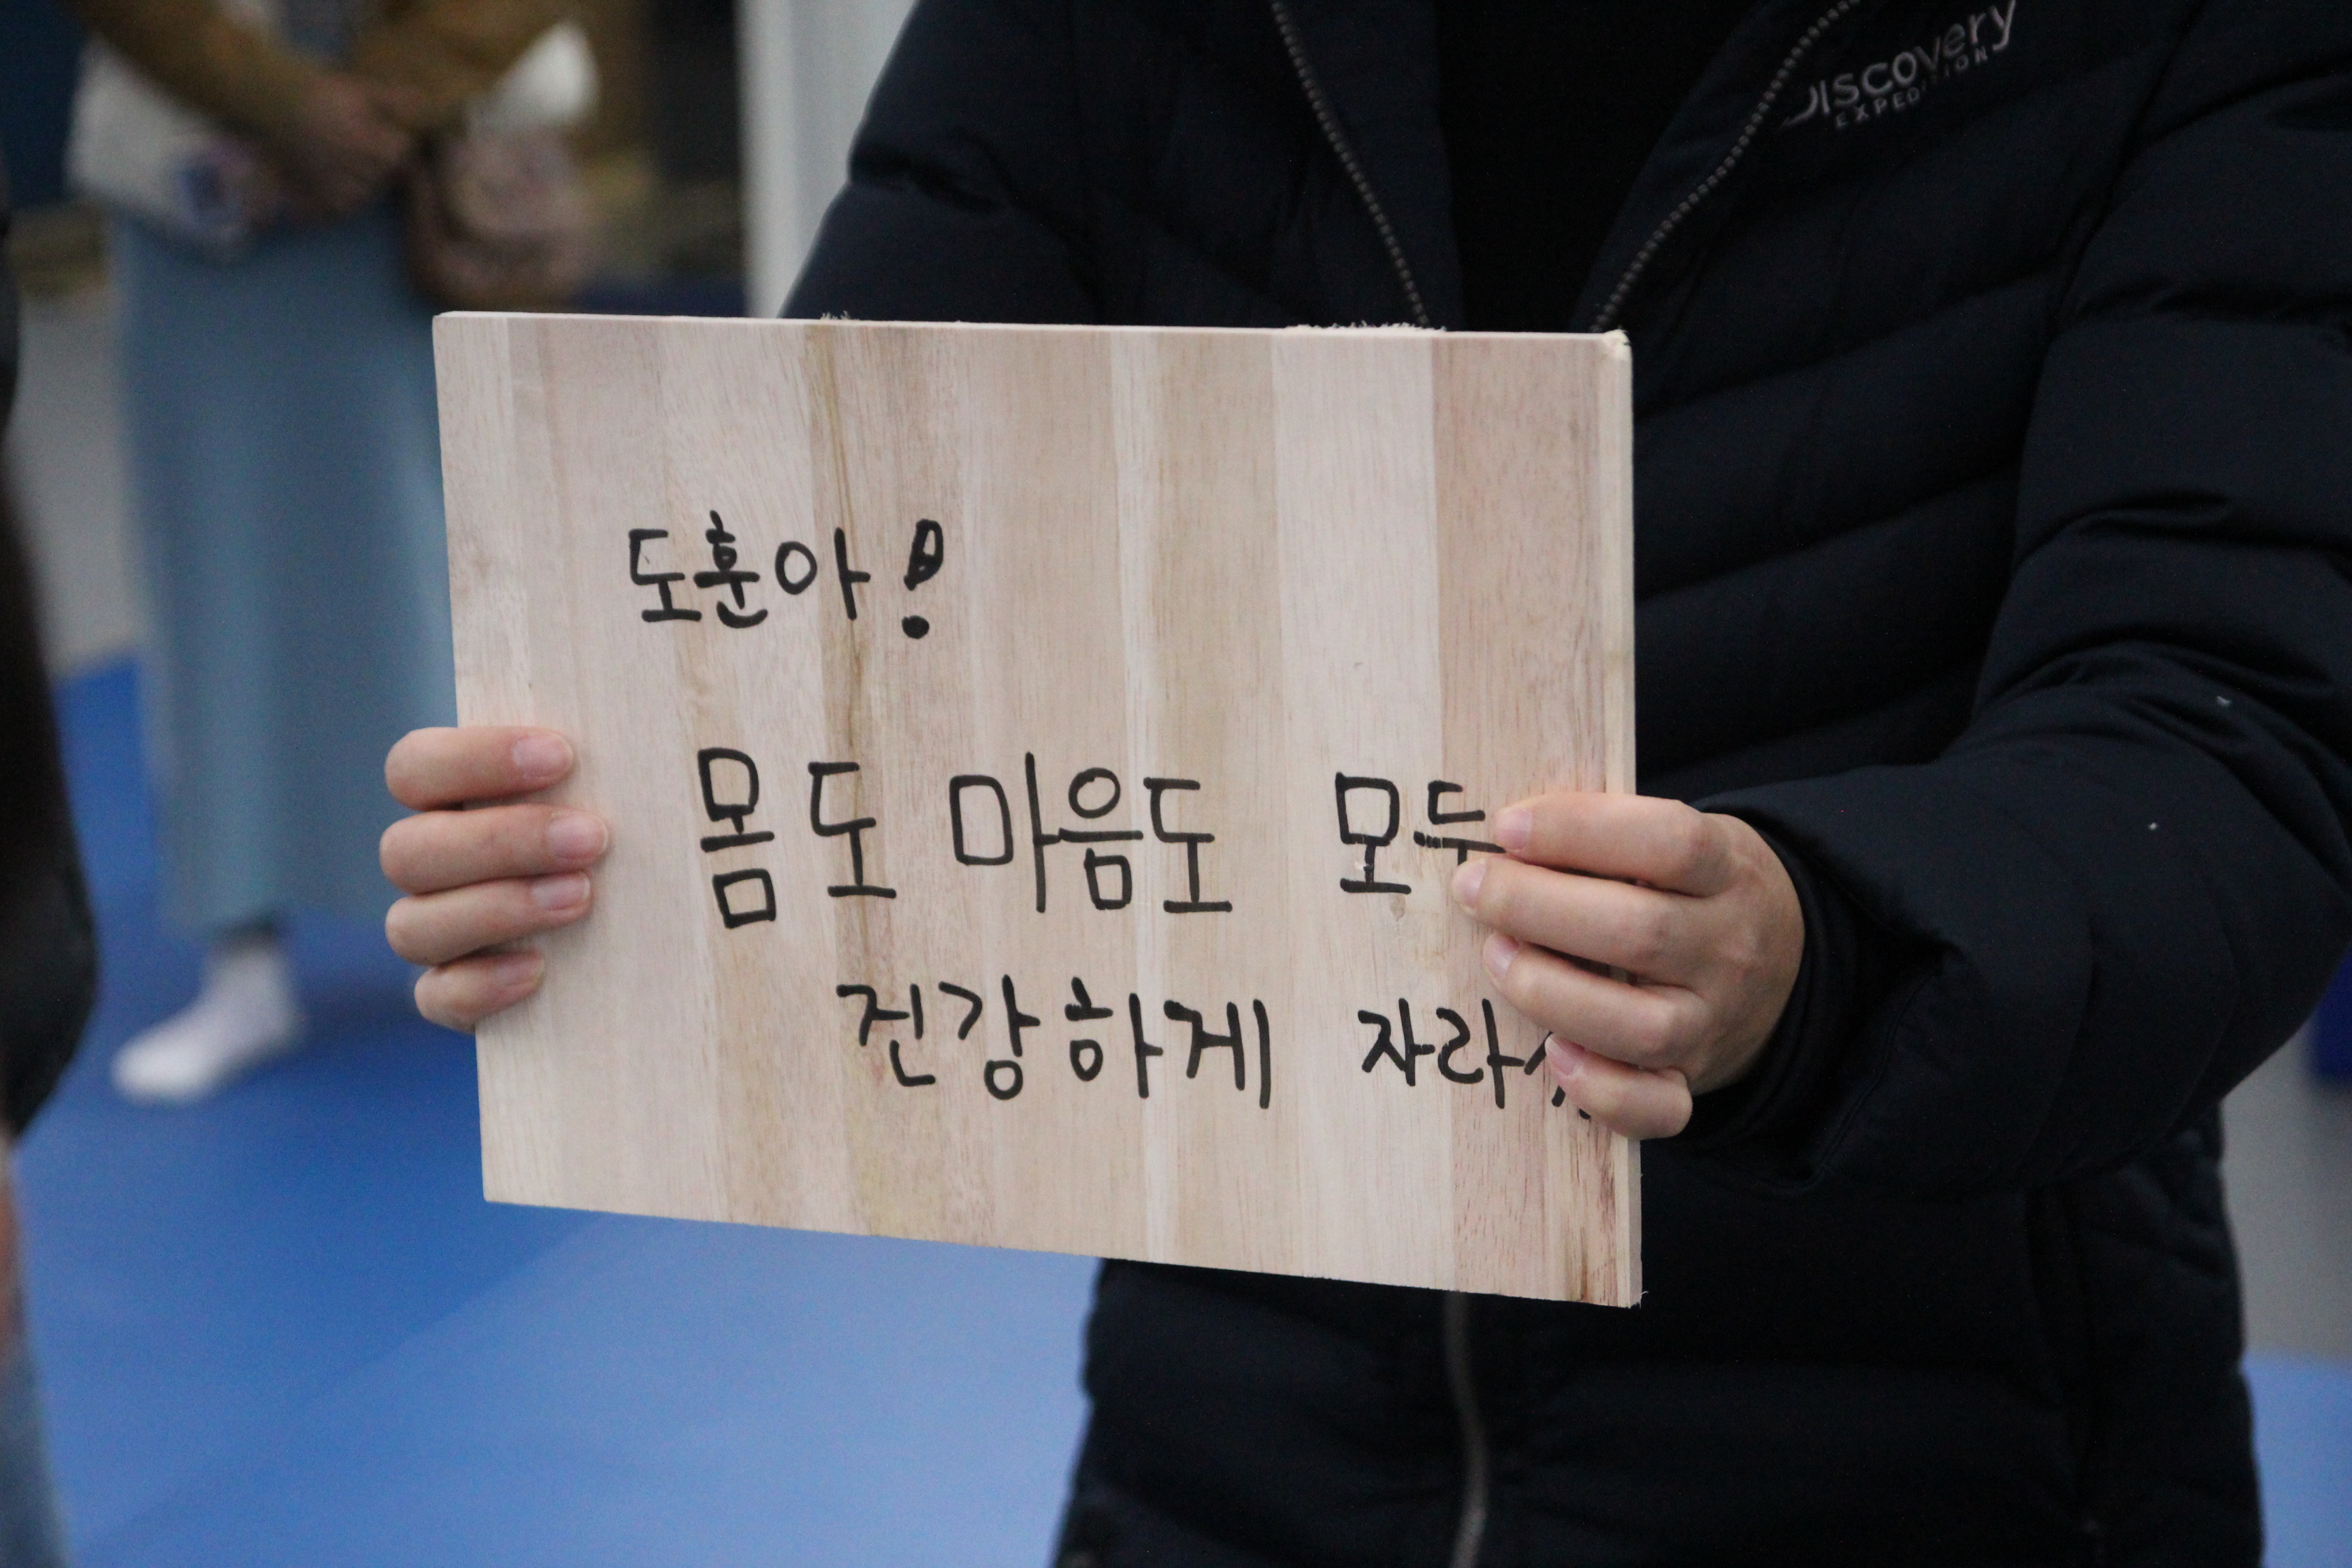 Discovery
EXPEDITION
도훈아!
몸도 마음도 모두
건강하게 자라